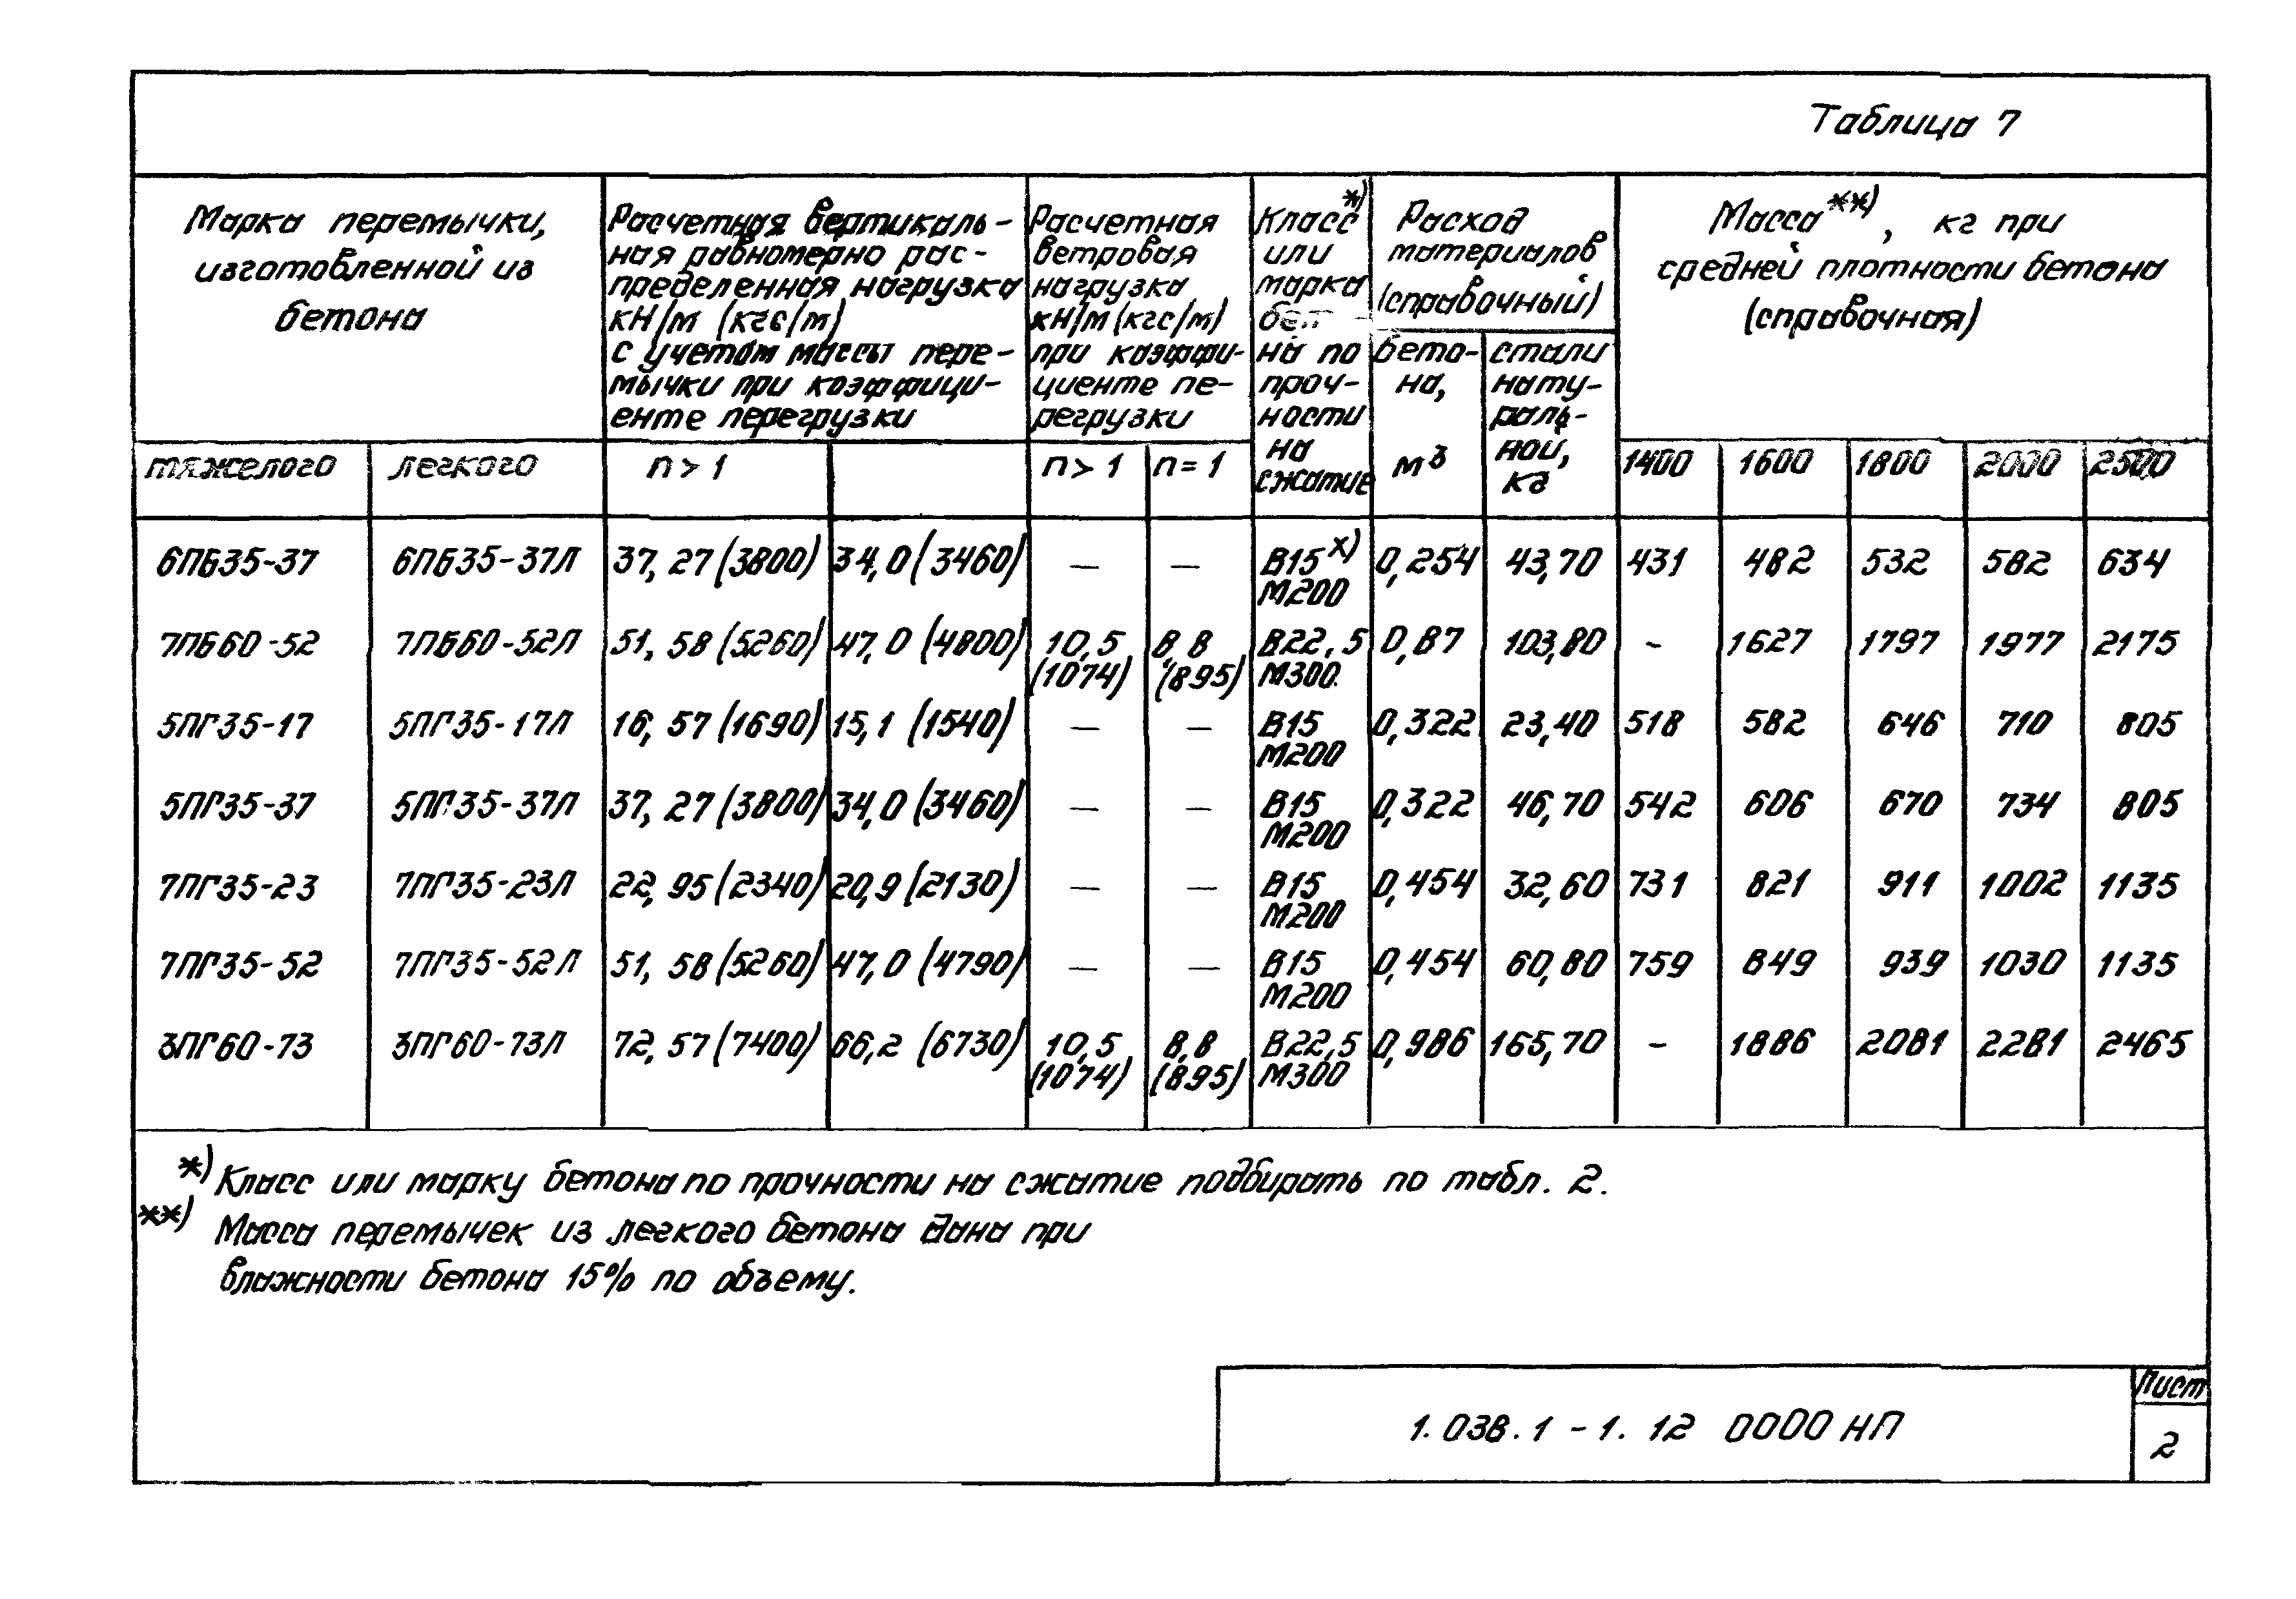 Таблица 7
Марка перемычки,
изготовленной из
бетона
Расчетная вертикаль-
ная равномерно рас-
пределенная нагрузка
кН/м (кгс/м)
с учетом массы пере-
мычки при коэффици-
енте перегрузки
Расчетная
ветровая
нагрузка
кН/м (кгс/м)
при коэффи-
циенте пе-
регрузки
Класс*)
или
марка
бет
на по
проч-
ности
на
сжатие
Расход
материалов
(справочный)
бето-
на,
м3
стали
нату-
раль-
ной,
кг
Масса**), кг при
средней плотности бетона
(справочная)
тяжелого легкого n > 1 n > 1 n = 1 1400 1600 1800 2000 2500
6ПБ35-37 6ПБ35-37Л 37,27 (3800) 34,0 (3460) — — В15 х) 0,254 43,70 431 482 532 582 634
М200
7ПБ60-52 7ПБ60-52Л 51,58 (5260) 47,0 (4800) 10,5 8,8 В22,5 0,87 103,80 - 1627 1797 1977 2175
(1074) (895) М300
5ПГ35-17 5ПГ35-17Л 16,57 (1690) 15,1 (1540) — — В15 0,322 23,40 518 582 646 710 805
М200
5ПГ35-37 5ПГ35-37Л 37,27 (3800) 34,0 (3460) — — В15 0,322 46,70 542 606 670 734 805
М200
7ПГ35-23 7ПГ35-23Л 22,95 (2340) 20,9 (2130) — — В15 0,454 32,60 731 821 911 1002 1135
М200
7ПГ35-52 7ПГ35-52Л 51,58 (5260) 47,0 (4790) — — В15 0,454 60,80 759 849 939 1030 1135
М200
3ПГ60-73 3ПГ60-73Л 72,57 (7400) 66,2 (6730) 10,5 8,8 В22,5 0,986 165,70 - 1886 2081 2281 2465
(1074) (895) М300
*) Класс или марку бетона по прочности на сжатие подбирать по табл. 2.
**) Масса перемычек из легкого бетона дана при
влажности бетона 15% по объему.
1.038.1-1.12 0000 НП
Лист
2